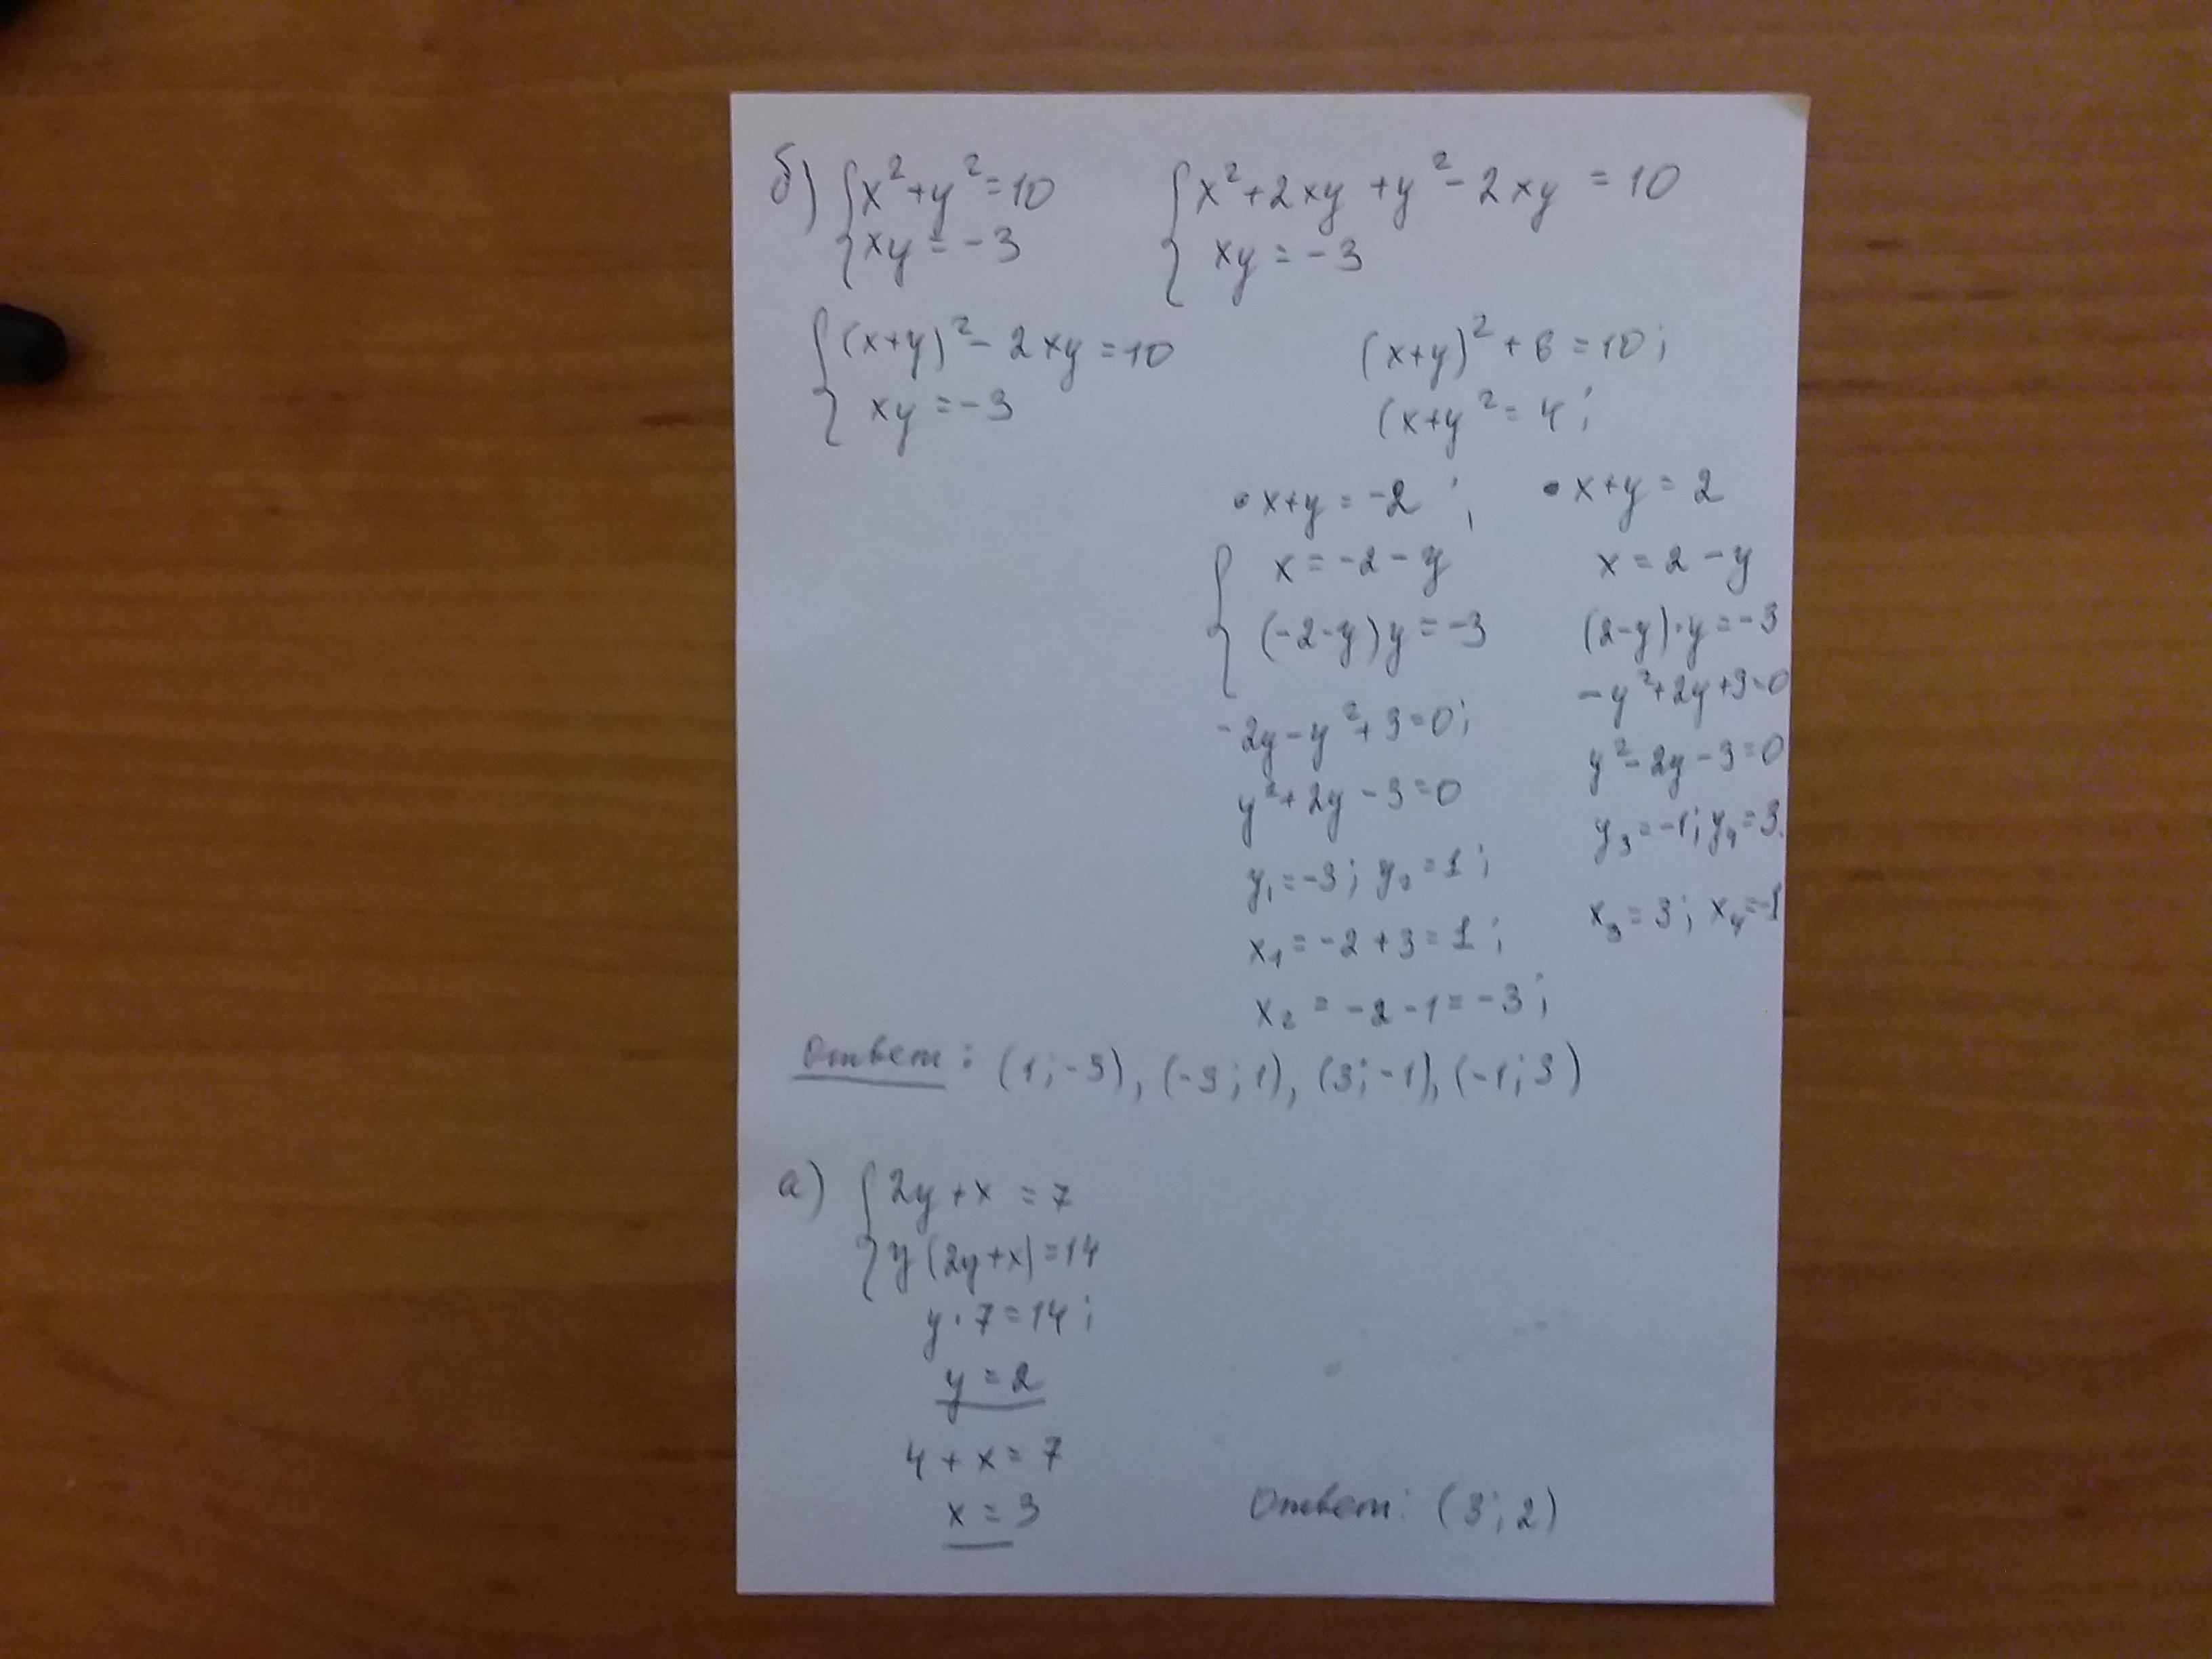 б) { x² + y² = 10
xy = -3
{ x² + 2xy + y² - 2xy = 10
xy = -3
{ (x+y)² - 2xy = 10
xy = -3
(x+y)² + 6 = 10;
(x+y ² = 4;
• x+y = -2 ;
{ x = -2 - y
(-2-y)y = -3
-2y - y² + 3 = 0;
y² + 2y - 3 = 0
y₁ = -3; y₂ = 1;
x₁ = -2 + 3 = 1;
x₂ = -2 - 1 = -3;
• x+y = 2
x = 2 - y
(2-y)·y = -3
-y² + 2y + 3 = 0
y² - 2y - 3 = 0
y₃ = -1; y₄ = 3.
x₃ = 3; x₄ = -1
Ответ: (1; -3), (-3; 1), (3; -1), (-1; 3)
а) { 2y + x = 7
y(2y+x) = 14
y·7 = 14;
y = 2
4 + x = 7
x = 3
Ответ: (3; 2)